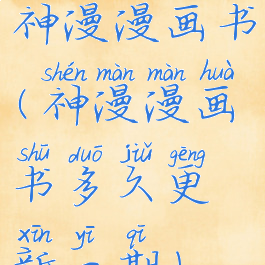 神漫漫画书
shén màn màn huà
(神漫漫画
shū duō jiǔ gēng
书多久更
xīn yī qī
新一期)